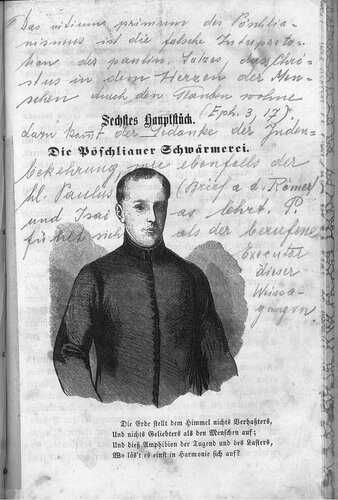 Das vitium primum des Pöschlia-
nismus ist die falsche Interpreta-
tion des paulin. Satzes, dass Chri-
stus in dem Herzen der Men-
schen durch den Glauben wohne
(Eph. 3, 17).
Sechstes Hauptstück.
dazu kommt der Gedanke der Juden-
Die Pöschlianer Schwärmerei.
bekehrung, wie ebenfalls der
hl. Paulus (Brief a. d. Römer)
und Isaias lehrt. P.
fühlt sich als der berufene
Executor
dieser
Weissa-
gungen.
Die Erde stellt dem Himmel nichts Verhaßters,
Und nichts Geliebters als den Menschen auf;
Und dieß Amphibion der Tugend und des Lasters,
Wo löst's es einst in Harmonie sich auf?